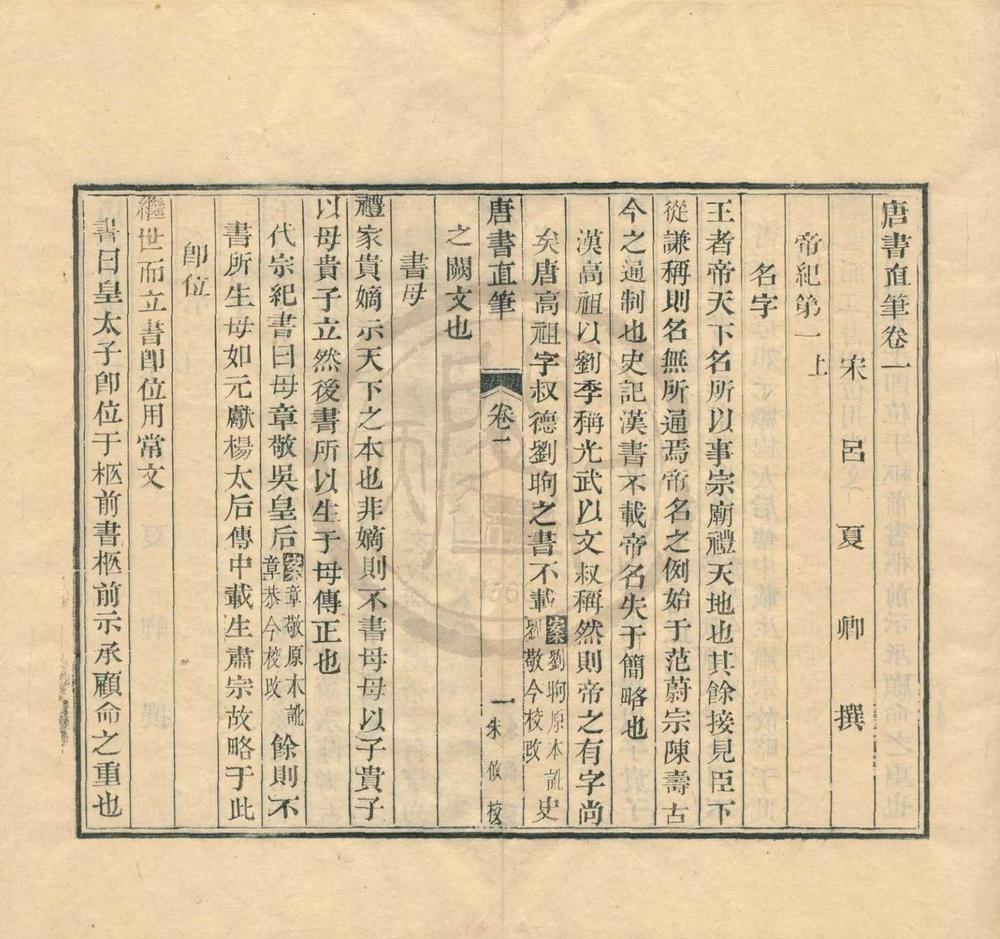 唐書直筆卷一
宋 呂 夏 卿 撰
帝紀第一上
名字
王者帝天下名所以事宗廟禮天地也其餘接見臣下
從謙稱則名無所通焉帝名之例始于范蔚宗陳壽古
今之通制也史記漢書不載帝名失于簡略也
漢高祖以劉季稱光武以文叔稱然則帝之有字尚
矣唐高祖字叔德劉昫之書不載案劉昫原本訛劉敬今校改史
唐書直筆 卷一 一 朱攸校
之闕文也
書母
禮家貴嫡示天下之本也非嫡則不書母母以子貴子
以母貴子立然後書所以生于母傳正也
代宗紀書曰母章敬吳皇后案章敬原本訛章恭今校改餘則不
書所生母如元獻楊太后傳中載生肅宗故略于此
卽位
繼世而立書卽位用常文
書曰皇太子卽位于柩前書柩前示承顧命之重也